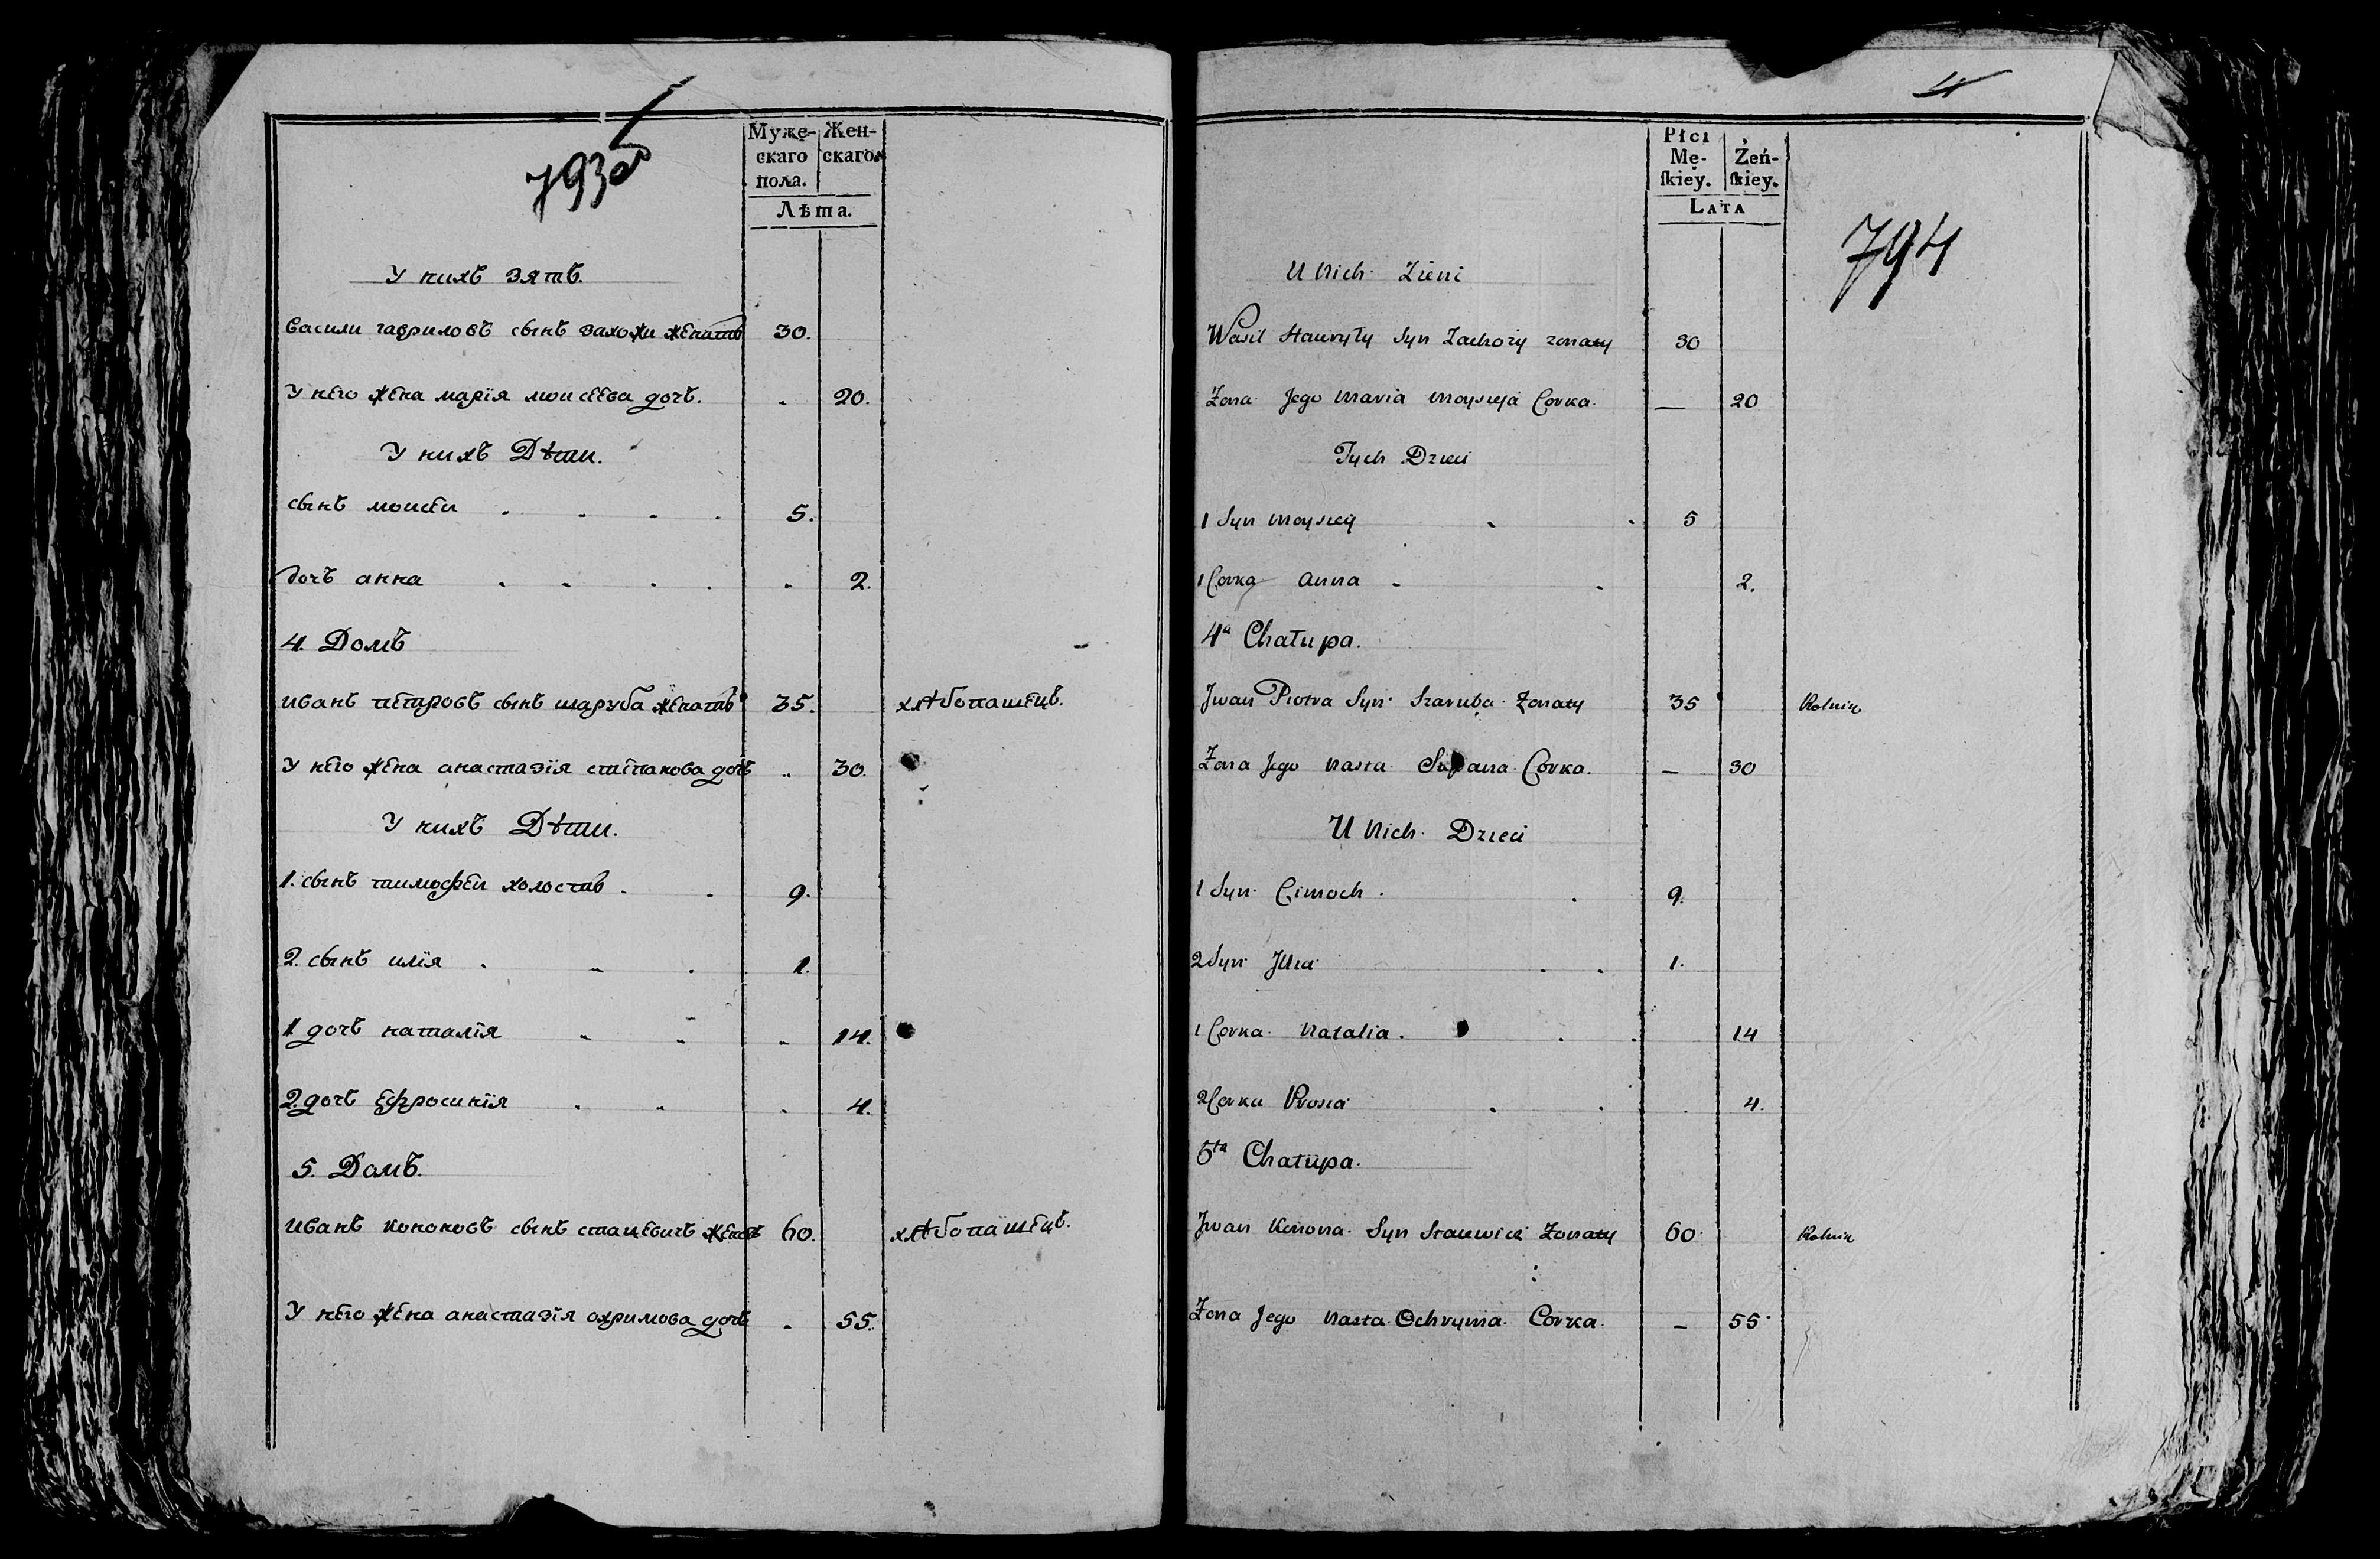 793об
Муже- Жен-
скаго скаго
пола.
Лѣта.
У нихъ зять.
Васили гавриловъ сынъ захожи женатъ 30.
У него жена марїя моисеева дочь. 20.
У нихъ Дѣти.
сынъ моисеи 5.
дочь анна 2.
4. Домъ
иванъ петровъ сынъ шаруба женатъ 35. хлѣбопашецъ.
У него жена анастазїя степанова дочь 30.
У нихъ Дѣти.
1. сынъ тимофеи холостъ 9.
2. сынъ илїя 1.
1 дочь наталїя 14.
2. дочь ефросинїя 4.
5. Домъ.
иванъ кононовъ сынъ стацевичъ женатъ 60. хлѣбопашецъ.
У него жена анастазїя охримова дочь 55.
4
794
Płci
Mę- Żeń-
ſkiey. ſkiey.
LATA
U Nich Zieni
Wasil Hawryły Syn Zachozy zonaty 30
Zona Jego Maria Moysieja Corka. — 20
Tych Dzieci
1 Syn Moysiey 5
1 Corka Anna 2.
4ta Chałupa.
Jwan Piotra Syn Szaruba Zonaty 35 Rolnik
Zona Jego Nasta Stepana Corka. — 30
U Nich Dzieci
1 Syn Cimoch 9.
2 Syn Jllia 1.
1 Corka Natalia. 14
2 Corka Prosia 4.
5ta Chałupa.
Jwan Konona Syn Stacewicz Zonaty 60 Rolnik
Zona Jego Nasta Ochryma Corka. — 55